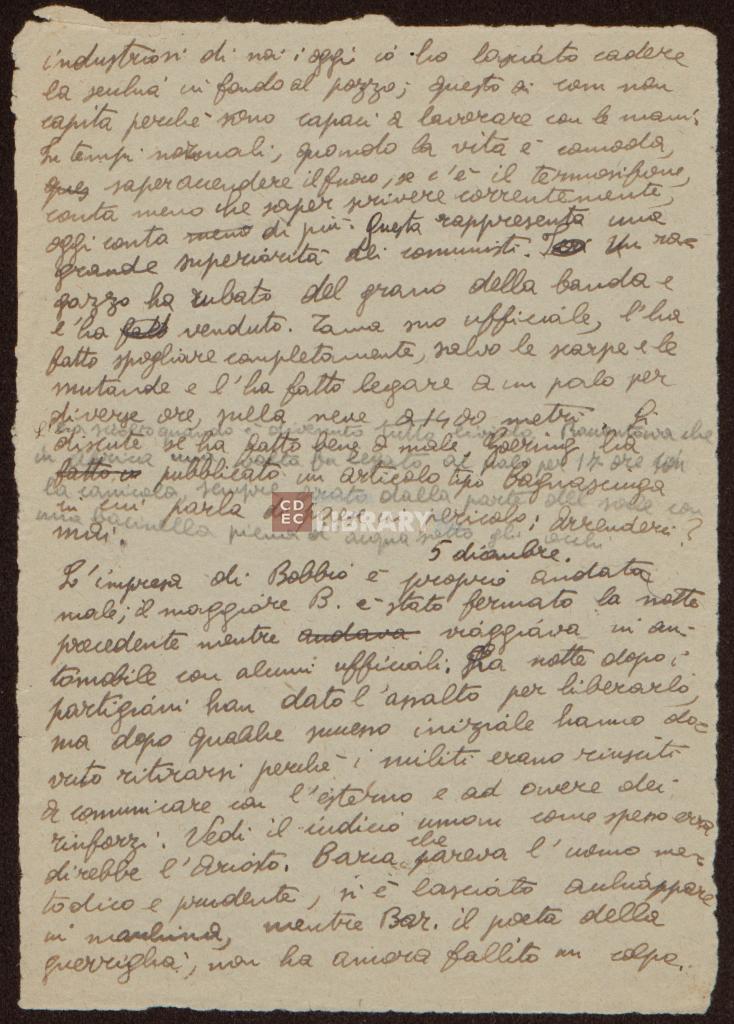 industriosi di noi; oggi io ho lasciato cadere
la secchia in fondo al pozzo; questo ai com non
capita perché sono capaci a lavorare con le mani.
In tempi normali, quando la vita è comoda,
ques saper accendere il fuoco, se c'è il termosifone,
conta meno che saper scrivere correntemente,
oggi conta meno di più. Questa rappresenta una
grande superiorità dei comunisti. Un ra-
gazzo ha rubato del grano della banda e
l'ha fatto venduto. suo ufficiale, l'ha
fatto spogliare completamente, salvo le scarpe e le
mutande e l'ha fatto legare a un palo per
diverse ore, sulla neve a 1400 metri. Si
che
discute se ha fatto bene o male. Goering ha
in una volta fu legato al palo per 12 ore con
fatto in pubblicato un articolo tipo bagnasciuga
la canicola, sempre girato dalla parte del sole con
in cui parla di pericolo; arrendersi?
una bacinella piena d'acqua sotto gli occhi
mai!
5 dicembre.
L'impresa di Bobbio è proprio andata
male; il maggiore B. è stato fermato la notte
precedente mentre andava viaggiava in au-
tomobile con alcuni ufficiali. La notte dopo i
partigiani han dato l'assalto per liberarlo,
ma dopo qualche successo iniziale hanno do-
vuto ritirarsi perché i militi erano riusciti
a comunicare con l'esterno e ad avere dei
rinforzi. Vedi il iudicio uman come spesso erra
direbbe l'Ariosto. che pareva l'uomo me-
todico e prudente, si è lasciato acchiappare
in macchina, mentre Bar. il poeta della
guerriglia, non ha ancora fallito un colpo.
CD
EC
LIBRARY